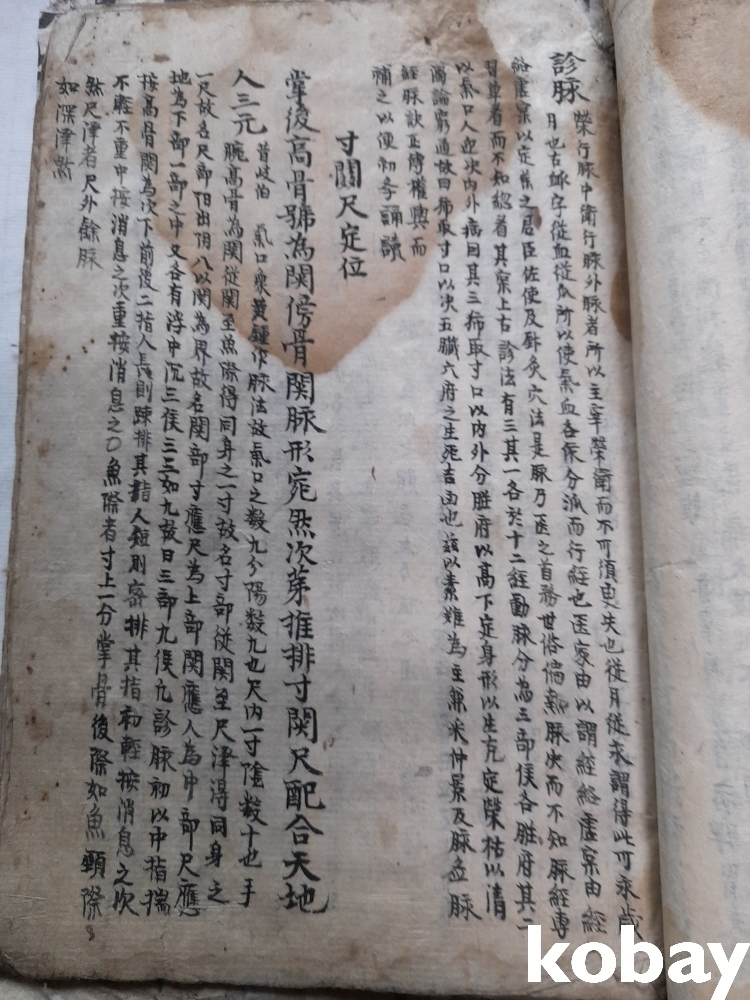 診脉 榮行脉中衛行脉外脉者所以主宰榮衛而不可須臾失也從月從永謂得此可永歲
月也古脉字從血從𠂢所以使氣血各依分派而行經也医家由以謂經絡虛案由經
絡虛案以定葉之君臣佐使及針灸穴法是脉乃医之首務世俗偏熟脉决而不知脉經專
習單者而不知総着其案上古診法有三其一各於十二經動脉分為三部候各脏府其二
以氣口人迎决內外病因其三獨取寸口以內外分脏府以高下定身形以生克定榮枯以清
濁論窮通故曰獨取寸口以决五臟六府之生死吉凶也茲以素難為主兼采仲景及脉盆脉
經脉訣正傳權輿而
補之以便初孝誦讀
寸關尺定位
掌後高骨號為関傍骨関脉形宛然次第推排寸関尺配合天地
人三元 昔岐伯 氣口衆黃鍾作脉法故氣口之数九分陽数九也尺內一寸陰数十也手
腕高骨為関從関至魚際得同身之一寸故名寸部從関至尺澤得同身之
一尺故名尺部陽出陰入以関為界故名関部寸應天為上部関應人為中部尺應
地為下部一部之中又各有浮中沉三候三三如九故曰三部九候凢診脉初以中指揣
按高骨関為次下前後二指人長則踈排其指人短則密排其指初輕按消息之次
不輕不重中按消息之次重按消息之〇魚際者寸上一分掌骨後際如魚頸際
然尺澤者尺外餘脉
如深澤然
kobay